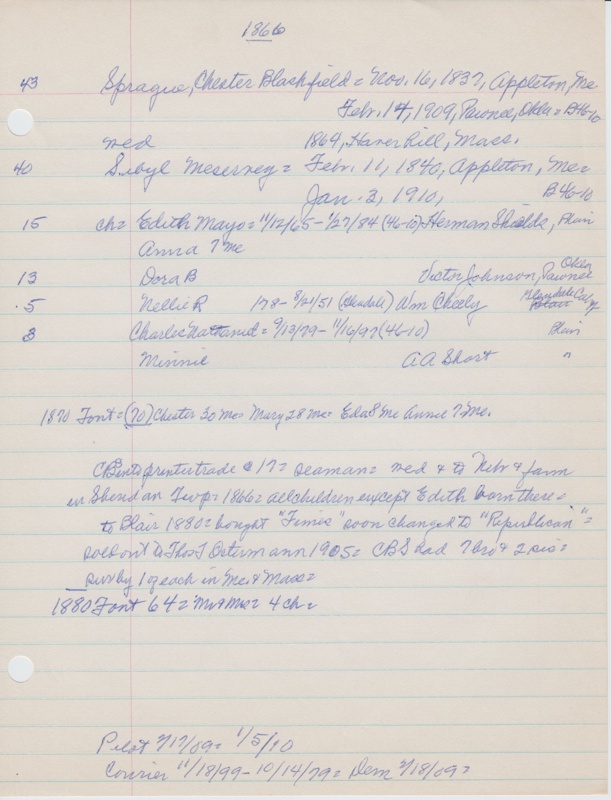 1866
43 Sprague, Chester Blackfield = Nov. 16, 1837, Appleton, Me
Febr. 14, 1909, Pawnee, Okla = B46-10
med 1864, Haverhill, Mass.
40 Sibyl Meservey = Febr. 11, 1840, Appleton, Me =
Jan. 3, 1910, B46-10
15 ch = Edith Mayo = 11/12/65 - 1/27/84 (46-10) Herman Shields, Blair
Anna 7 Me
13 Dora B Victor Johnson, Pawnee Okla
5 Nellie R 178 - 8/21/51 (Glendale) Wm Cheely Glendale Calif
3 Charles Nathaniel = 9/13/79 - 11/16/97 (46-10) Blair
Minnie AA Short "
1870 Font = (70) Chester 30 Me = Mary 28 Me = Eda 8 Me Annie 7 Me.
CB into printer trade @ 17 = seaman = med & to Nebr & farm
in Sheridan Twp = 1866 = all children except Edith born there =
to Blair 1880 = bought "Times" soon changed to "Republican" =
sold out to Thos T Ostermann 1905 = CBS had 7 bro & 2 sis =
surv by 1 of each in Me & Mass =
1880 Font 64 = Mr & Mrs = 4 ch =
Pilot 2/17/09 = 1/5/10
Courier 11/18/99 - 10/14/79 = Dem 2/18/09 =